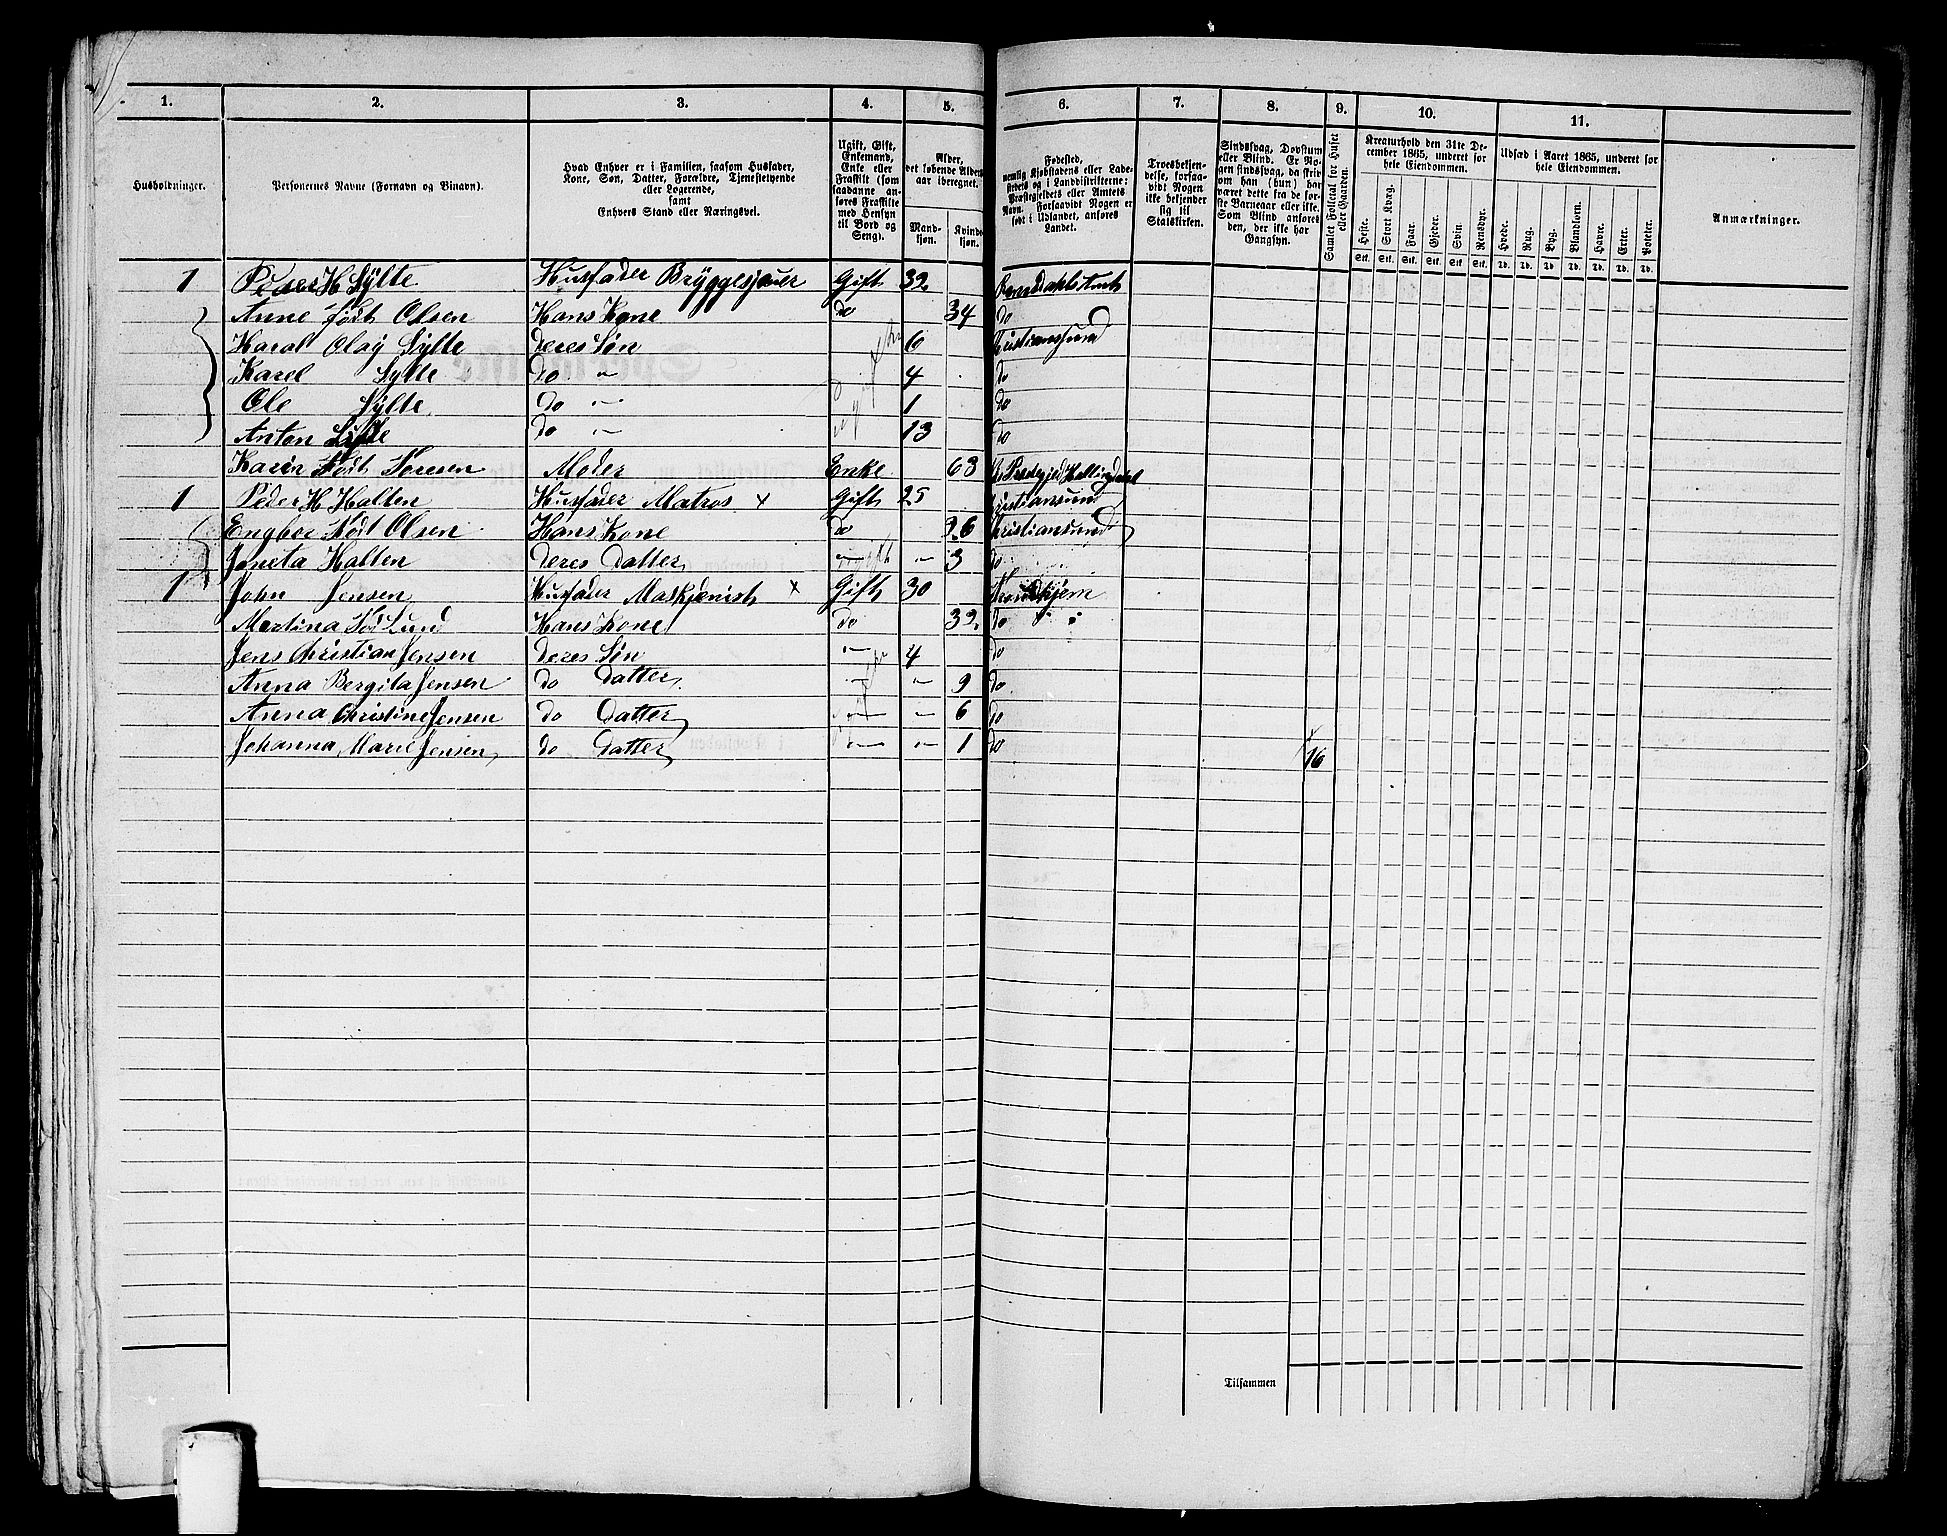 1. 2. 3. 4. 5. 6. 7. 8. 9. 10. 11.
Husholdninger.
Personernes Navne (Fornavn og Binavn).
Hvad Enhver er i Familien, saasom Husfader,
Kone, Søn, Datter, Forældre, Tjenestetyende
eller Logerende,
samt
Enhvers Stand eller Næringsvei.
Ugift, Gift,
Enkemand,
Enke eller
Fraskilt (som
saadanne an-
føres Fraskilte
med Hensyn
til Bord og
Seng).
Alder,
det løbende Alders-
aar iberegnet.
Mand-
kjøn.
Kvinde-
kjøn.
Fødested,
nemlig Kjøbstadens eller Lade-
stedets og i Landdistrikterne:
Præstegjeldets eller Amtets
Navn. Forsaavidt Nogen er
født i Udlandet, anføres
Landet.
Troesbekjen-
delse, forsaa-
vidt Nogen
ikke bekjender
sig til
Statskirken.
Sindssvag, Døvstum
eller Blind. Er No-
gen sindssvag, da skriv
om han (hun) har
været dette fra de før-
ste Barneaar eller ikke.
Som Blind anføres
den, der ikke har
Gangsyn.
Samlet Folketal for Huset
eller Gaarden.
Kreaturhold den 31te De-
cember 1865, underet for
hele Eiendommen.
Heste. Stort Kvæg. Faar. Gjeder. Svin. Rensdyr.
Stk. Stk. Stk. Stk. Stk. Stk.
Udsæd i Aaret 1865, underet for
hele Eiendommen.
Hvede. Rug. Byg. Blandkorn. Havre. Erter. Poteter.
Td. Td. Td. Td. Td. Td. Td.
Anmærkninger.
1 Peder H Sylte Husfader Bryggesjauer Gift 32 Romsdahls Amt
Anne født Olsen Hans Kone do 34 do
Olaj Sylte deres Søn 6 Kristianssund
Karel Sylte do " 4 do
Ole Sylte do " 1 do
Anton Sylte do " 13 do
Karin født Moder Enke 63
1 Peder H Halten Husfader Matros x Gift 25 Kristiansund
Født Olsen Hans Kone do 26 Christiansund
Halten deres Datter " " 3 do
1 John Jensen Husfader Maskjenist x Gift 30 Trondhjem
Martina Lund Hans Kone do 32 do
Jens Christian Jensen deres Søn " 4 do
Anna Bergita Jensen do Datter " " 9 do
Anna Christine Jensen do Datter " " 6 do
Johanna Marie Jensen do Datter " " 1 do
16
Tilsammen